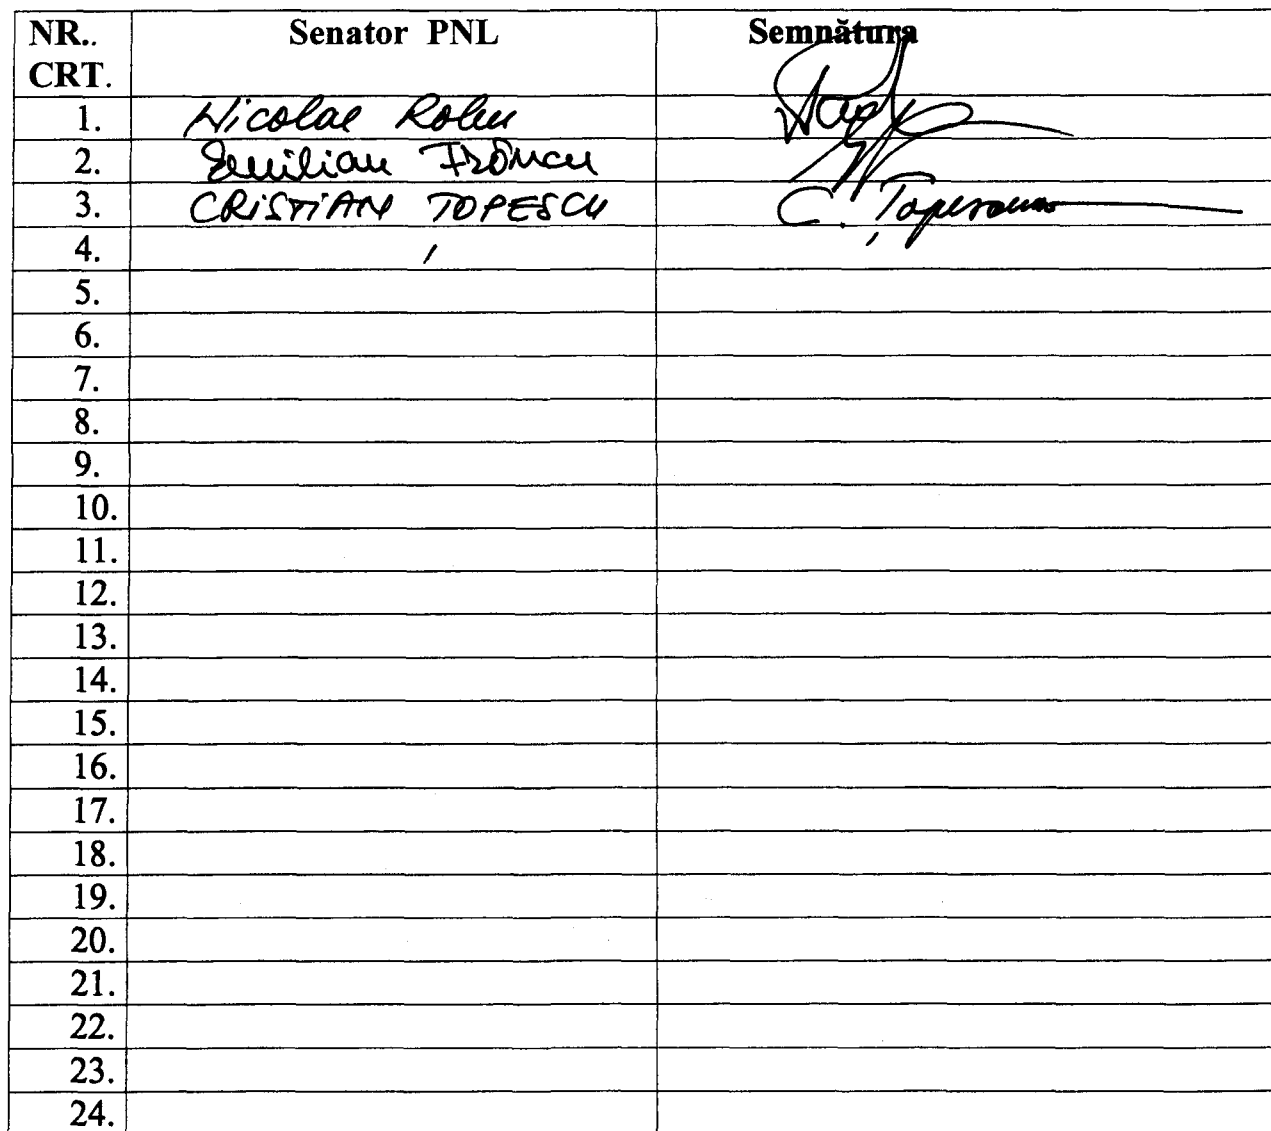 NR.. Senator PNL Semnătura
CRT.
1. Nicolae Robu
2. Emilian Frâncu
3. CRISTIAN ȚOPESCU C. Țopescu
4.
5.
6.
7.
8.
9.
10.
11.
12.
13.
14.
15.
16.
17.
18.
19.
20.
21.
22.
23.
24.